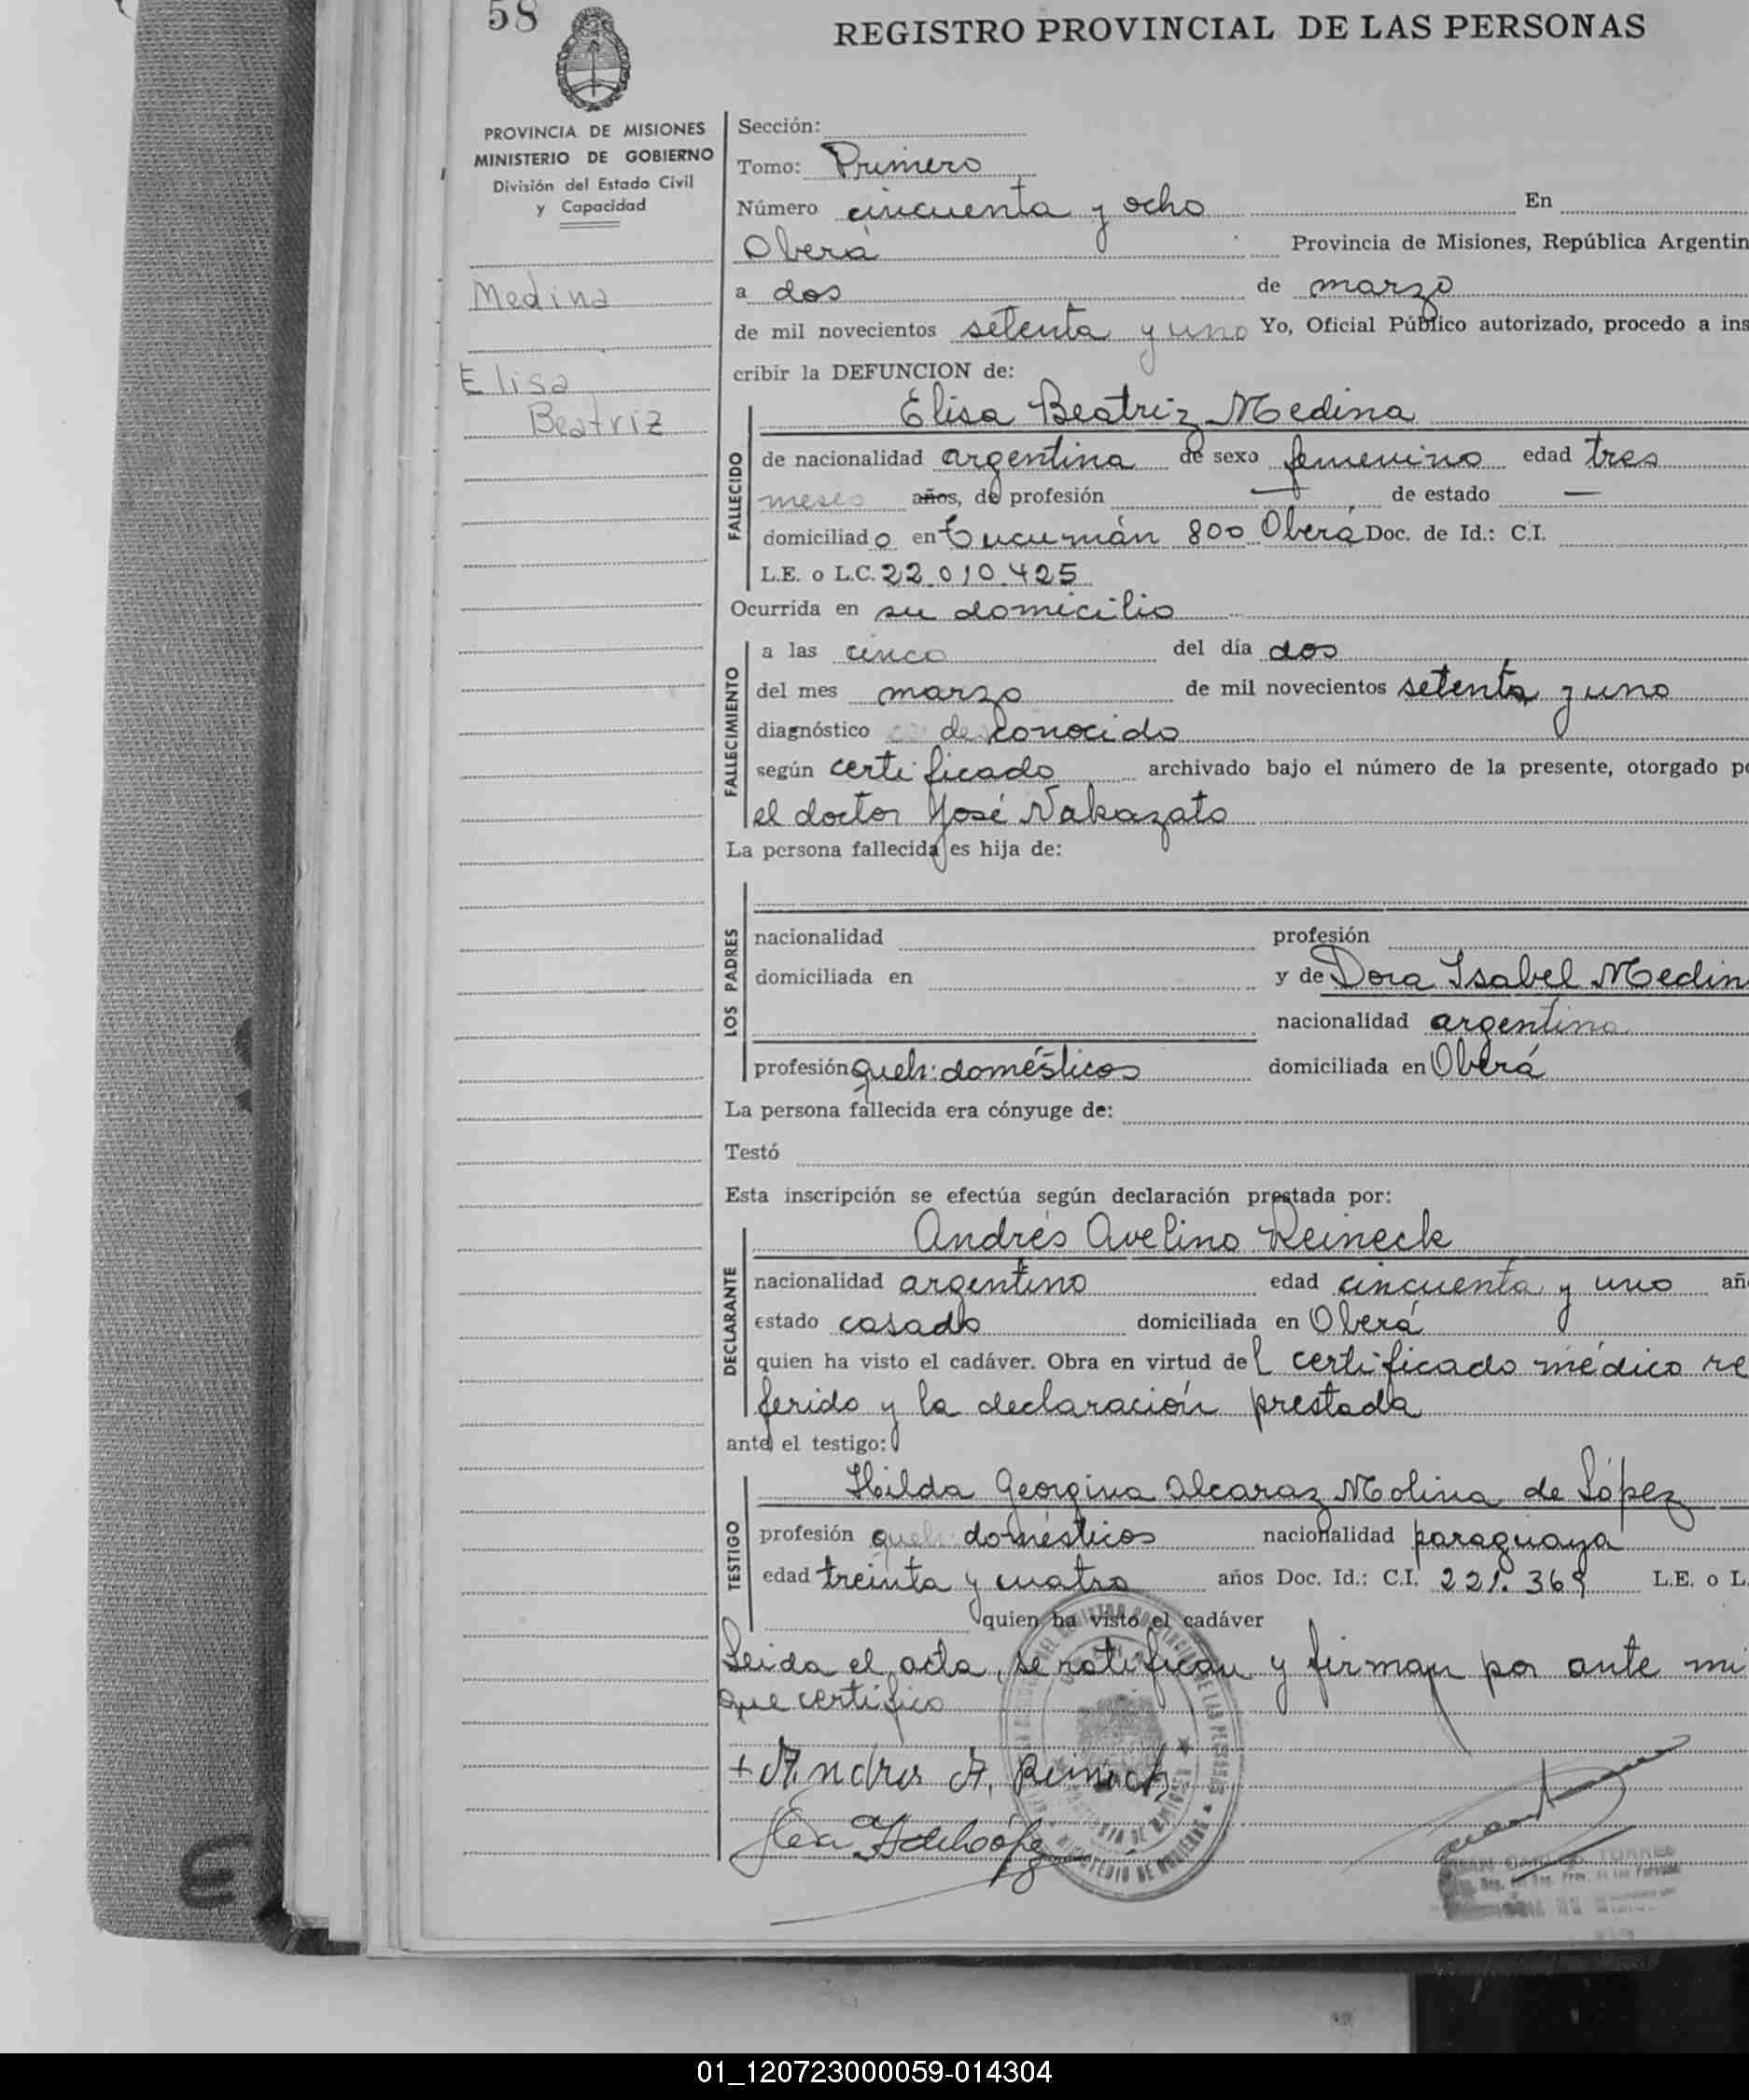 58
REGISTRO PROVINCIAL DE LAS PERSONAS
PROVINCIA DE MISIONES
MINISTERIO DE GOBIERNO
División del Estado Civil
y Capacidad
Medina
Elisa
Beatriz
Sección:
Tomo: Primero
Número cincuenta y ocho En
Oberá Provincia de Misiones, República Argentin
a dos de marzo
de mil novecientos setenta y uno Yo, Oficial Público autorizado, procedo a ins
cribir la DEFUNCION de:
Elisa Beatriz Medina
FALLECIDO
de nacionalidad argentina de sexo femenino edad tres
meses años, de profesión — de estado —
domiciliado en tucumán 800 Oberá Doc. de Id.: C.I.
L.E. o L.C. 22.010.425
Ocurrida en su domicilio
FALLECIMIENTO
a las cinco del día dos
del mes marzo de mil novecientos setenta y uno
diagnóstico desconocido
según certificado archivado bajo el número de la presente, otorgado po
el doctor José Nakazato
La persona fallecida es hija de:
LOS PADRES
nacionalidad profesión
domiciliada en y de Dora Isabel Medin
nacionalidad argentina
profesión queh: domésticos domiciliada en Oberá
La persona fallecida era cónyuge de:
Testó
Esta inscripción se efectúa según declaración prestada por:
Andrés Avelino Reineck
DECLARANTE
nacionalidad argentino edad cincuenta y uno añ
estado casado domiciliada en Oberá
quien ha visto el cadáver. Obra en virtud del certificado médico re
ferido y la declaración prestada
ante el testigo:
Hilda Georgina Alcaraz Molina de López
TESTIGO
profesión queh: domésticos nacionalidad paraguaya
edad treinta y cuatro años Doc. Id.: C.I. 221.369 L.E. o L.
quien ha visto el cadáver
Leida el acta, se notifican y firman por ante mi
que certifico
+ Andres A. Reineck
TORRES
01_120723000059-014304